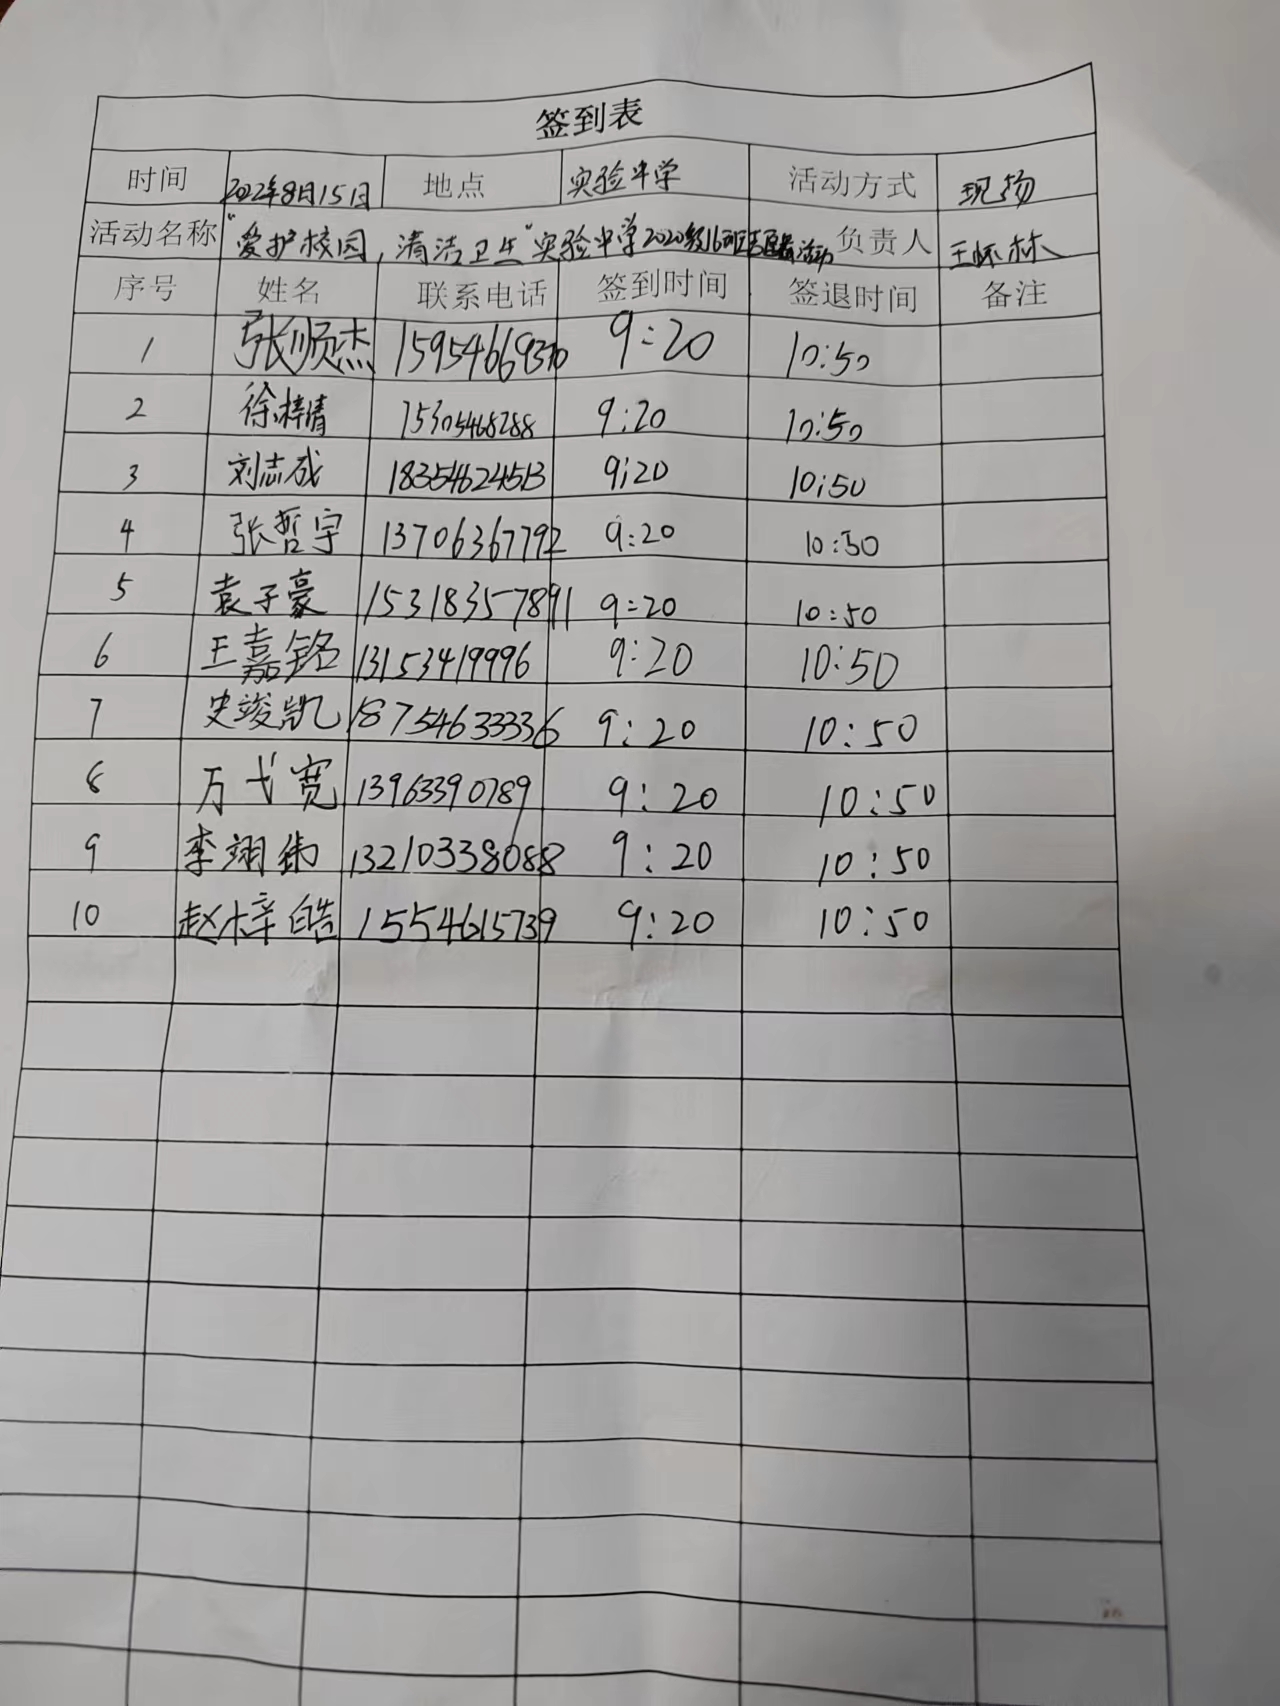 签到表
时间 2022年8月15日 地点 实验中学 活动方式 现场
活动名称 "爱护校园,清洁卫生"实验中学2020级16班志愿者活动 负责人 王怀林
序号 姓名 联系电话 签到时间 签退时间 备注
1 张顺杰 15954669370 9:20 10:50
2 徐梓晴 15305468288 9:20 10:50
3 刘志成 18354624513 9:20 10:50
4 张哲宇 13706367792 9:20 10:50
5 袁子豪 15318357891 9:20 10:50
6 王嘉铭 13153419996 9:20 10:50
7 史竣凯 18754633336 9:20 10:50
8 万弋宽 13963390789 9:20 10:50
9 李翊 13210338088 9:20 10:50
10 赵梓皓 15554615739 9:20 10:50